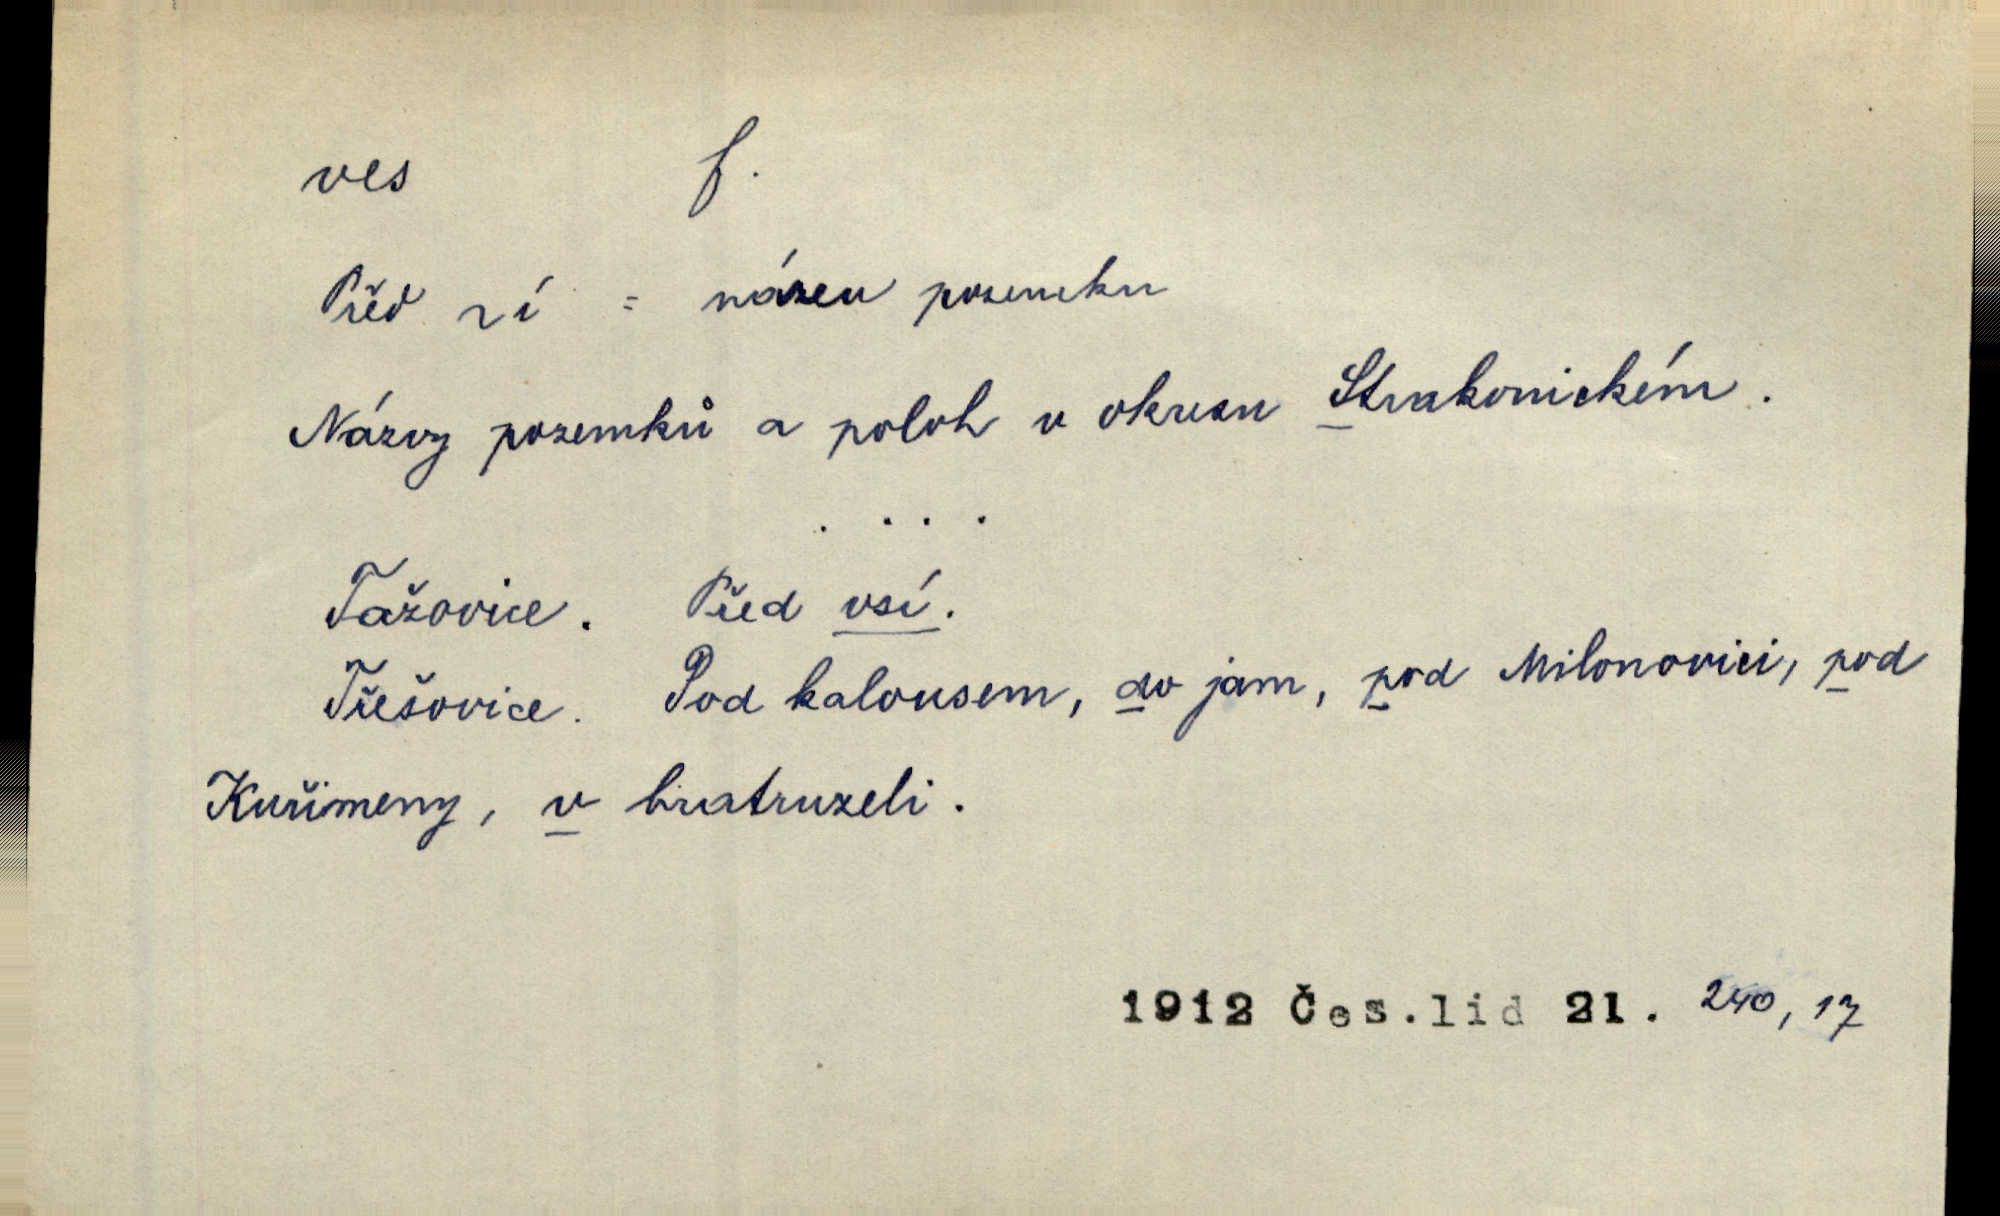 ves f.
Před ~í = název pozemku
Názvy pozemků a poloh v okresu Strakonickém.
. . . .
Tažovice. Před vsí.
Třešovice. Pod kalousem, do jam, pod Milonovici, pod
Kuřimeny, v bratruzeli.
1912 Čes.lid 21. 240, 17